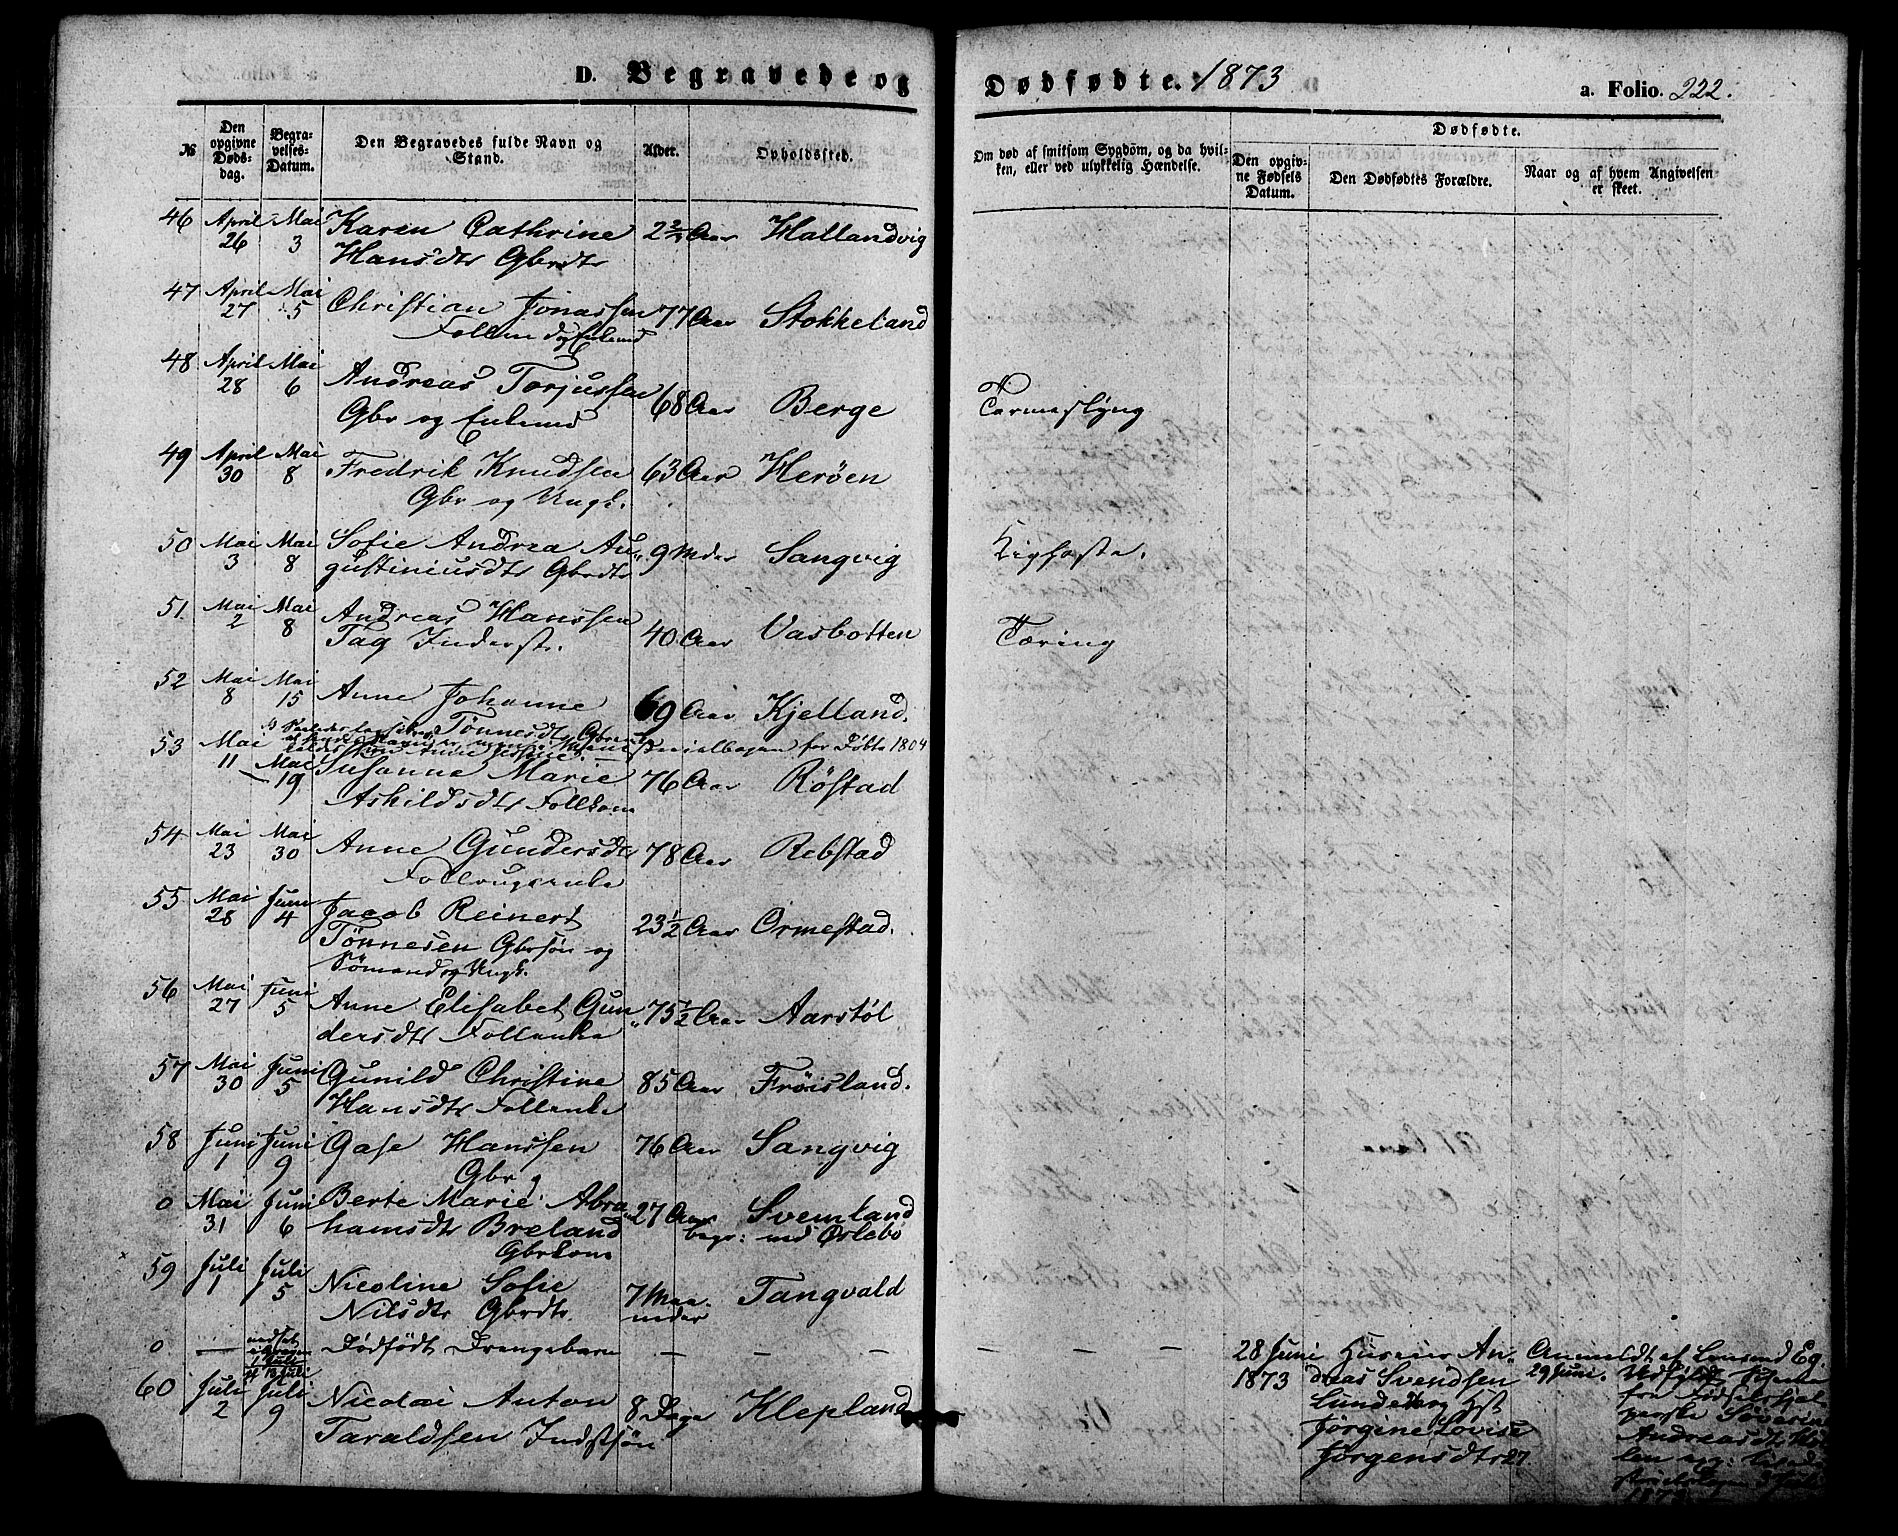 D. Begravede og Dødfødte. 1873
a. Folio. 222.
№
Den opgivne Døds-dag.
Begra-velses-Datum.
Den Begravedes fulde Navn og Stand.
Alder.
Opholdssted.
Om død af smitsom Sygdom, og da hvil-ken, eller ved ulykkelig Hændelse.
Dødfødte.
Den opgiv-ne Fødsels Datum.
Den Dødfødtes Forældre.
Naar og af hvem Angivelsen er skeet.
46 April 26 Mai 3 Karen Cathrine Aar Hallandvig
Hansdtr Gbrdtr
47 April 27 Mai 5 Christian Jonassen 77 Aar Stokkeland
48 April 28 Mai 6 Andreas Torjussen 68 Aar Berge Tarmeslyng
Gbr og Enkmd
49 April 30 Mai 8 Fredrik Knudsen 63 Aar Herøen
Gbr og Ungk.
50 Mai 3 Mai 8 Sofie Andrea Au- 9 Mdr Sangvig Kighoste.
gustiniusdtr Gbrdtr
51. Mai 2 Mai 8 Andreas Hanssen 40 Aar Vasbotten Tæring
Tag Inderst.
52 Mai 8 Mai 15 Anne Johanne 69 Aar Kjelland.
Tønnesdtr
for Døbte 1804
53 Mai 11 Mai 19 Susanne Marie 76 Aar Røstad
Askildsdtr Follkone
54 Mai 23 Mai 30 Anne Gundersdtr 78 Aar Rebstad
55 Mai 28 Juni 4 Jacob Reinert 23½ Aar Ormestad.
Tönnesen Gbrsøn og
Sømand og Ungk.
56 Mai 27 Juni 5 Anne Elisabet Gun- 75½ Aar Aarstøl
dersdtr Follenke
57 Mai 30 Juni 5 Gunild Christine 85 Aar Frøisland.
Hansdtr Follenke
58 Juni 1 Juni 9 Gase Hanssen 76 Aar Sangvig
Gbr
0 Mai 31 Juni 6 Berte Marie Abra- 27 Aar Svemland
hamsdtr Breland begr: ved Øslebø
Gbrkone
59 Juli 1 Juli 5 Nicoline Sofie 7 Maa- Tangvald
Nilsdtr Gbrdtr. neder
0 — nedsat Dødfødt Drengebarn — — — — — 28 Juni 1873 Husmand An- Anmeldt af
dreas Svendsen 29 Juni.
Lundevog Hst
Jørgine Lovise
Jørgensdtr 27
fra Fødselshjel-
perske Søverine
Andreasdtr
60 Juli 2 Juli 9 Nicolai Anton 8 Dage Klepland
Taraldsen Indstsøn